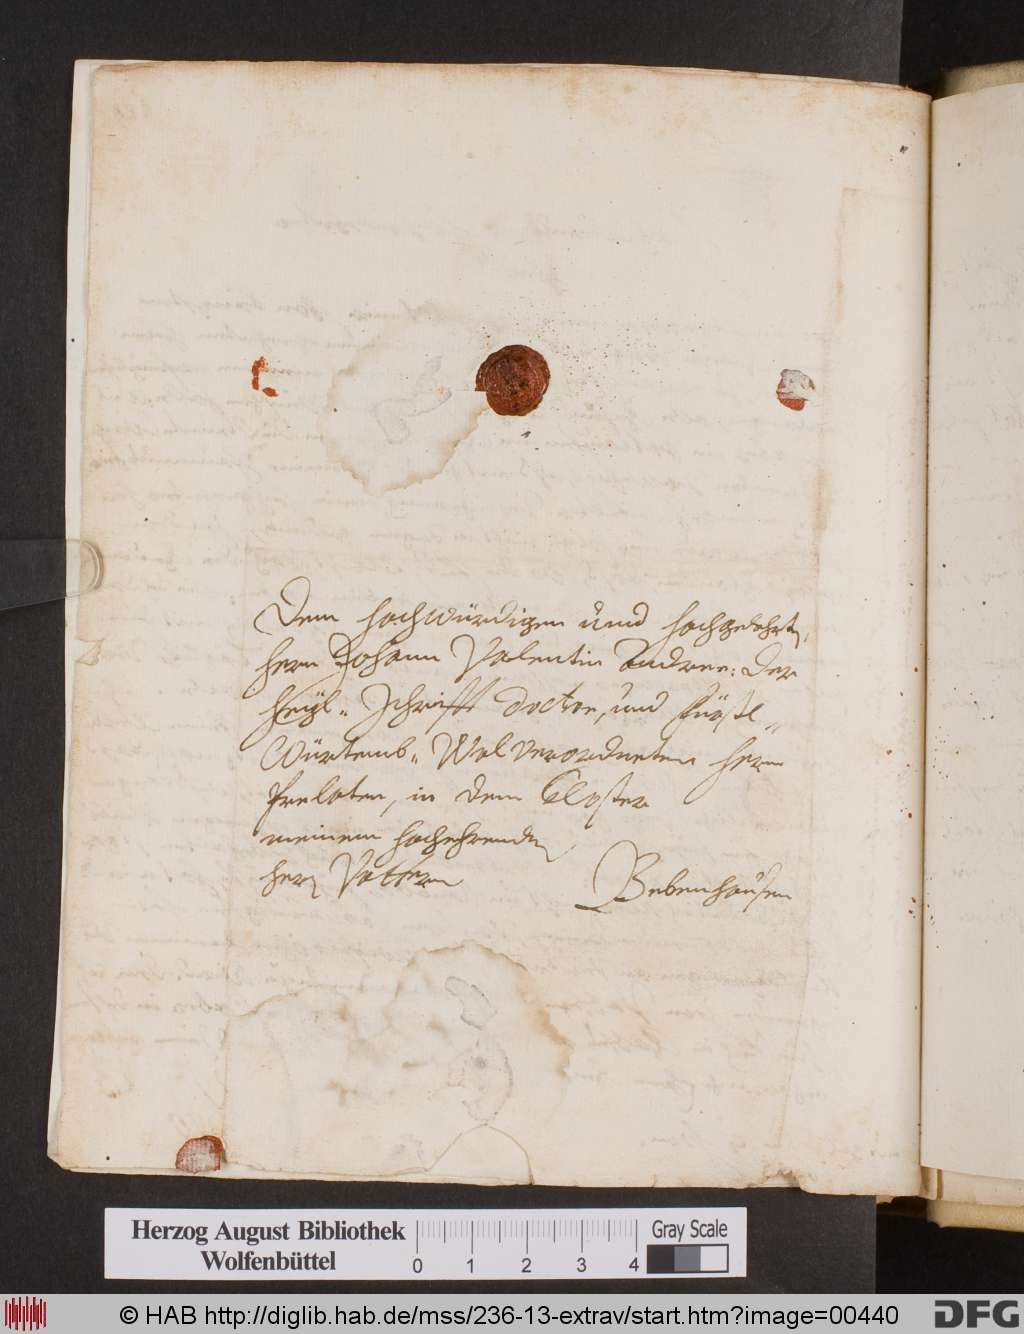 Dem hochwürdigen und hochgelehrten,
hern Johann Valentin Andreæ: der
heyl„ Schrifft Doctor, und Fürstl„
Würtemb„ Wolverordneten hern
Prelaten, in dem Closter
meinem hochehrenden
hern Vattern
Bebenhausen
Herzog August Bibliothek
Wolfenbüttel
0 1 2 3 4
Gray Scale
© HAB http://diglib.hab.de/mss/236-13-extrav/start.htm?image=00440
DFG